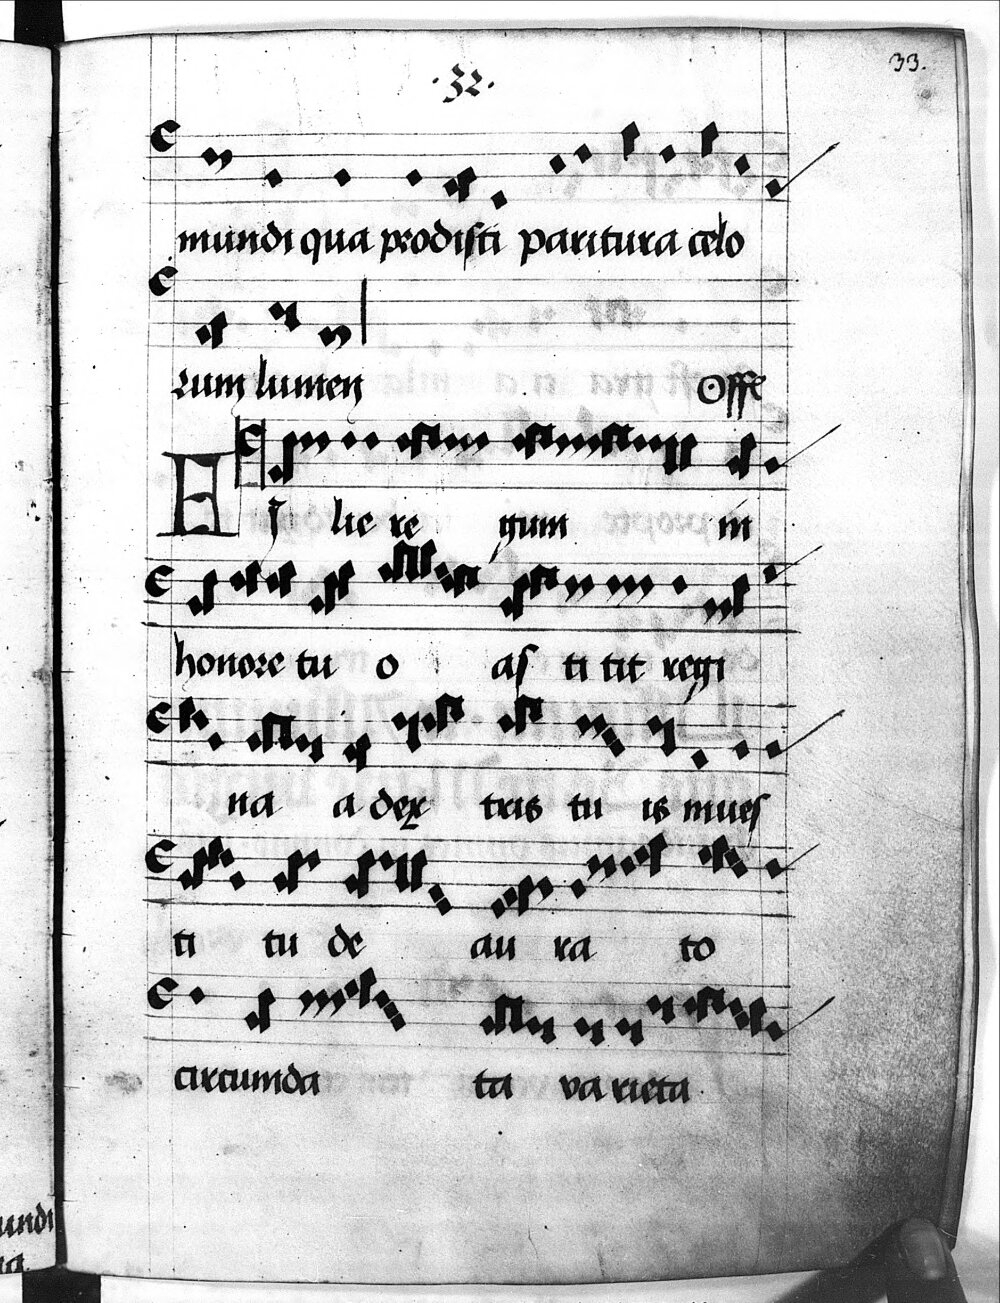 33.
·32·
mundi qua prodisti paritura celo
rum lumen Offe
Fi lie re gum in
honore tu o as ti tit regi
na a dex tris tu is in ues
ti tu de au ra to
circumda ta va rieta